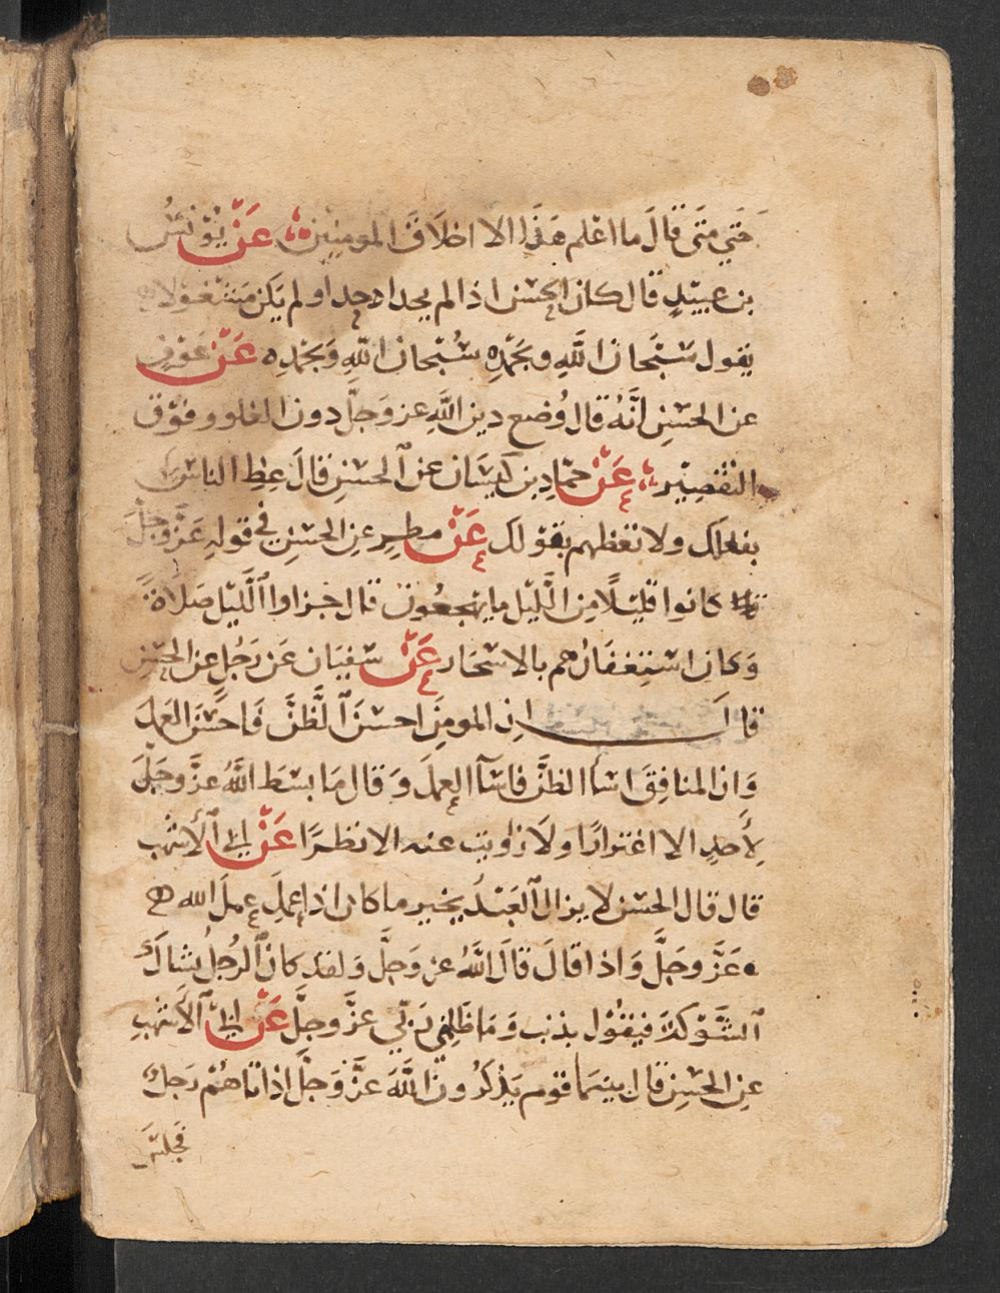 حَتي مَتَي قالَ ما اعْلم هَذَا الا اخلاقَ المومِنِين عَنْ يُوْنسُ
بن عبيْدٍ قال كان الحسَن اذا لم يجد احدا ولم يَكن مَشغُولا
يقول سُبْحانَ اللَّهِ وبحَمْدِهِ سُبْحان اللّهِ وَبحَمْدِه عَنْ عَوْفٍ
عن الحسَنِ انَّهُ قال وُضع دين اللَّهِ عز وَجلَّ دون الغلو وفوْق
التقصِيْرِ عَنْ حمّاد بن كيسَان عن الحسَنِ قالَ عِظِ الناسَ
بفعلك ولا تعظهم بقوْلك عَنْ مطرٍ عن الحسَنِ في قولهِ عَزَّوجَلَّ
كانوا قليْلًا مِن الَّليْل ما يهْجعُون قال اجزاوا الَّليْل صَلاةً
وَكان اسْتِغفَارُهم بالاسْحَار عَنْ سُفيَان عَن رَجُلٍ عن الحسَنِ
قال اِن المومِنَ احسَنَ الظَّنَّ فَاحسَنَ العَملَ
وَان المنافِقَ اسَاَ الظنَّ فاسَآ العملَ وَقال مَا بسَط اللهُ عزَّ وجلَّ
لِأحدٍ الا اغتِرارًا ولَا زُوِيت عنه الا نظرًا عَنْ ابي الأشهَب
قال قال الحسَن لا يزال العَبْدُ بخير ما كان اذا عمِلَ عملَ الله
عَزَّ وجَلَّ وَاذا قالَ قالَ اللهُ عز وَجلَّ وَلقد كان الرجُلُ يشاك
الشَّوْكةَ فيقوُل بذنب وَمَا ظلمَني رَبّي عزَّ وجلَّ عَنْ ابي الأشهَبِ
عن الحسَنِ قال بينَمَا قوم يَذْكرُونَ اللَّهَ عزَّ وَجلَّ اذ اتَاهمْ رَجلٌ
فجلسَ